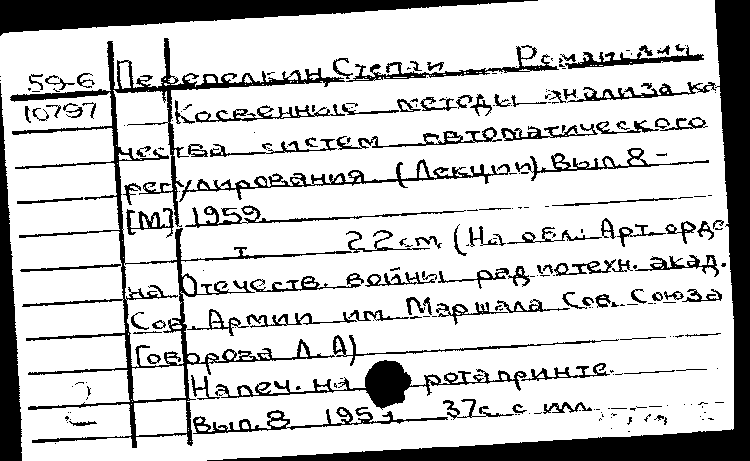 59-6 Перепелкин, Степан Романович
10797 Косвенные методы анализа ка
чества систем автоматического
регулирования. (Лекции). Вып. 8 -
[М], 1959.
т. 22 см. (На обл.: Арт. орде
на Отечеств. войны радиотехн. акад.
Сов. Армии им. Маршала Сов. Союза
Говорова Л. А)
Напеч. на ротапринте.
Вып. 8. 1959. 37с. с илл.